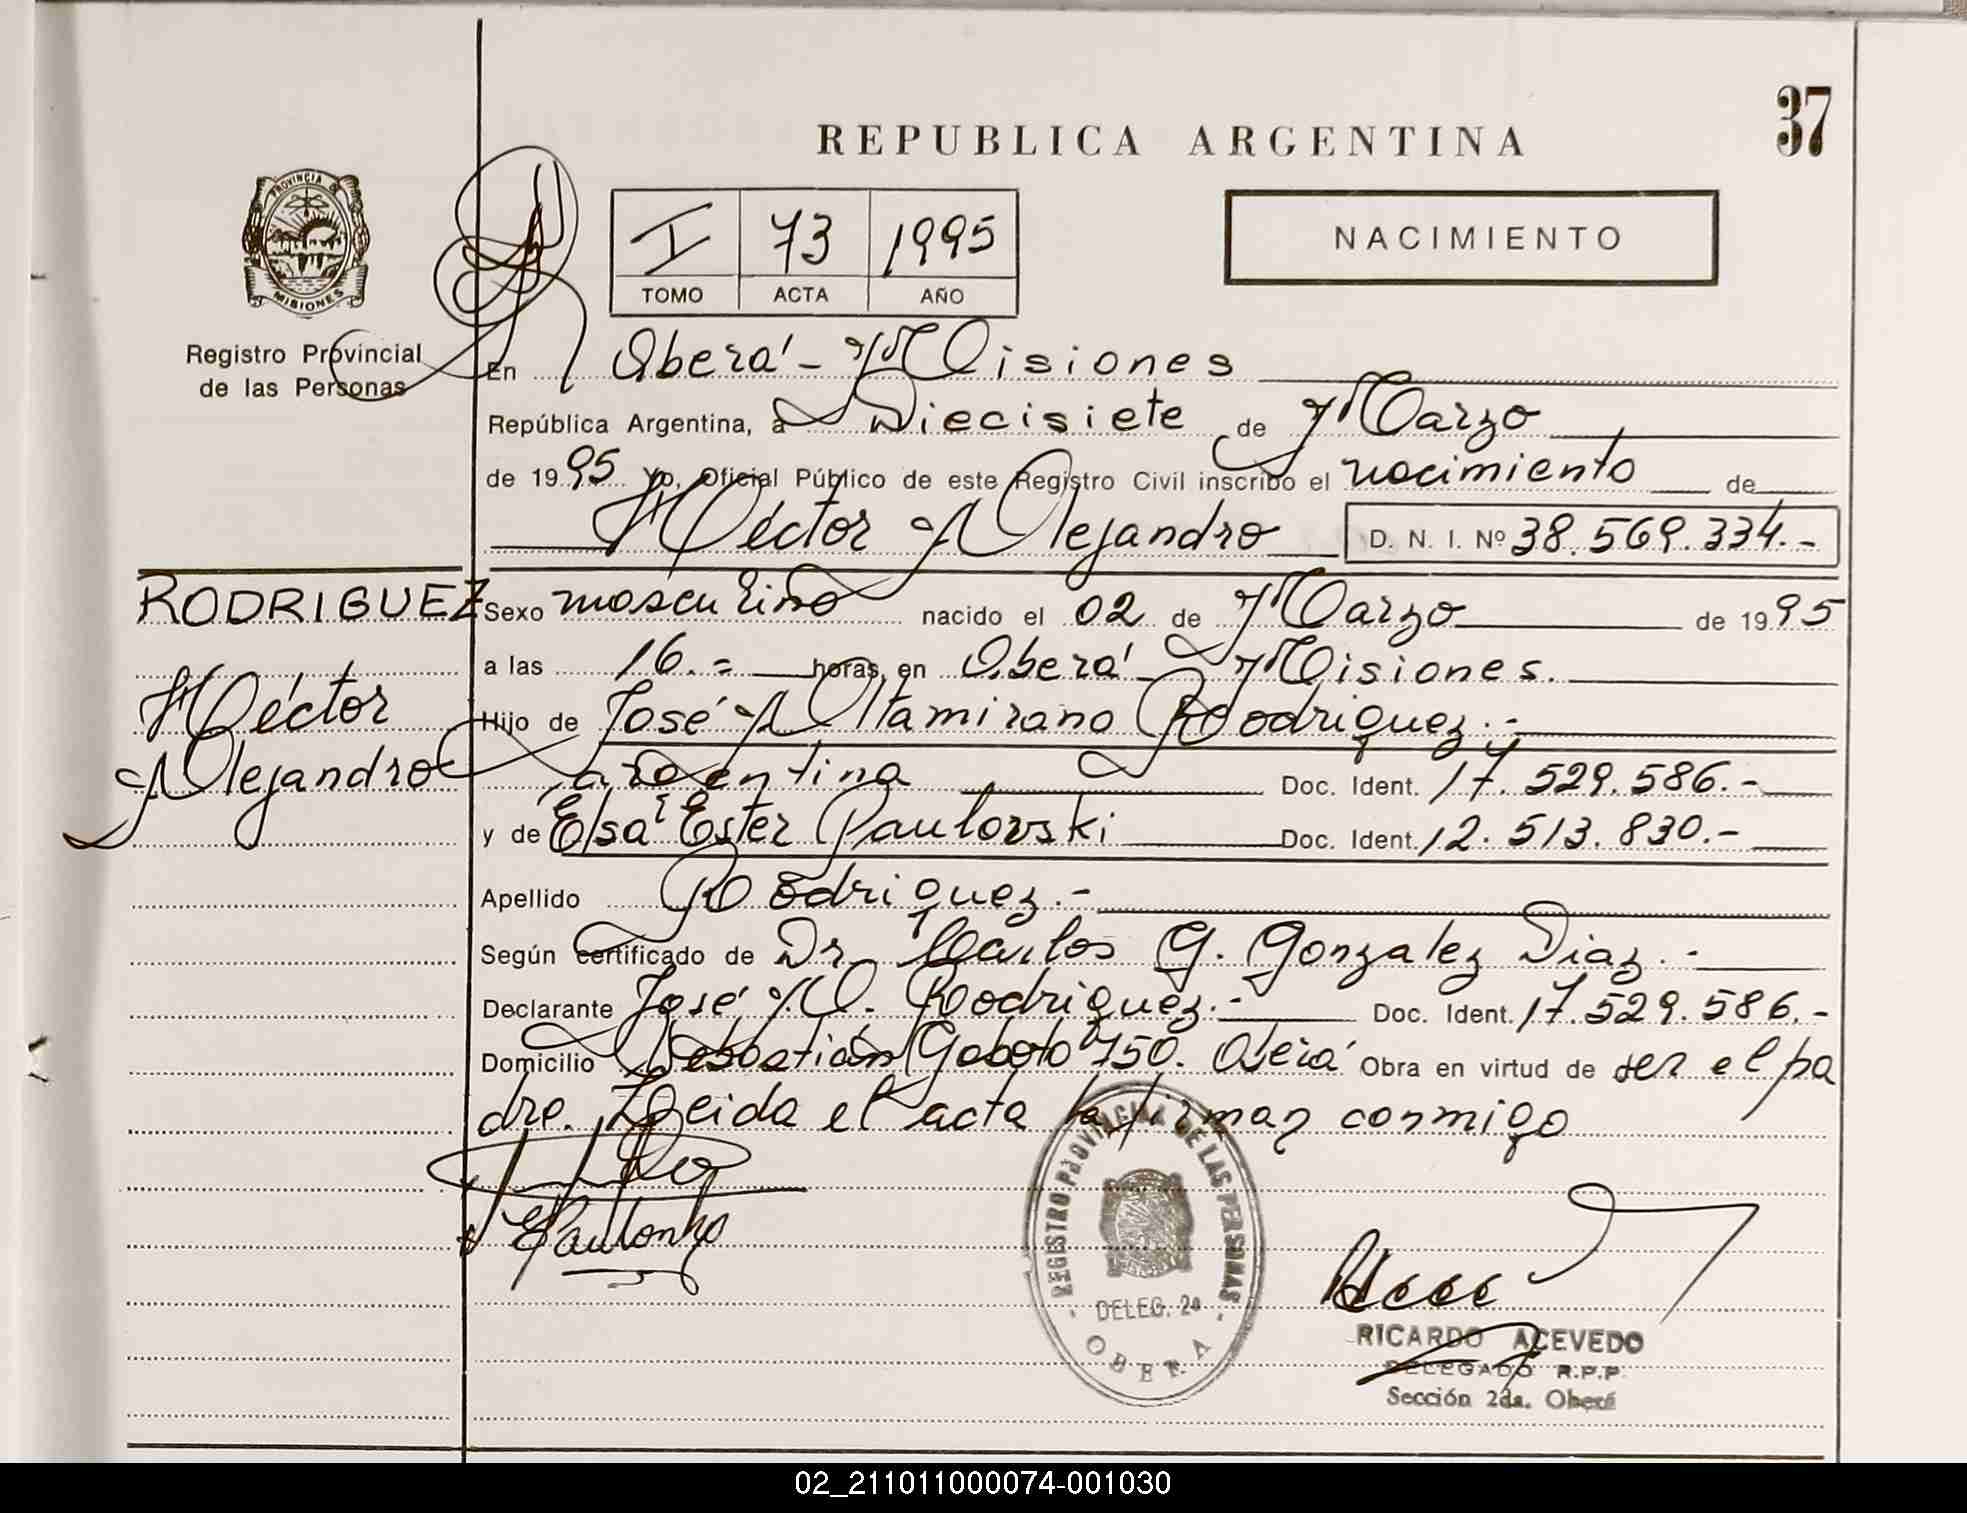 37
REPUBLICA ARGENTINA
PROVINCIA DE
MISIONES
Registro Provincial
de las Personas
I 73 1995
TOMO ACTA AÑO
NACIMIENTO
En Oberá - Misiones
República Argentina, a Diecisiete de Marzo
de 1995 Yo, Oficial Público de este Registro Civil inscribo el nacimiento de
Héctor Alejandro D. N. I. Nº 38.569.334.-
RODRIGUEZ
Héctor
Alejandro
Sexo masculino nacido el 02 de Marzo de 1995
a las 16.= horas, en Oberá - Misiones.
Hijo de José Altamirano Rodriguez.-
argentina Doc. Ident. 17.529.586.-
y de Elsa Ester Paulovski Doc. Ident. 12.513.830.-
Apellido Rodriguez.-
Según certificado de Dr. Carlos G. Gonzalez Diaz.-
Declarante José A. Rodriguez.- Doc. Ident. 17.529.586.-
Domicilio Sebastián Gaboto 750. Oberá Obra en virtud de ser el pa
dre. Leida el acta la firman conmigo
REGISTRO PROVINCIAL DE LAS PERSONAS
DELEG. 2a
OBERA
RICARDO ACEVEDO
DELEGADO R.P.P.
Sección 2da. Oberá
02_211011000074-001030